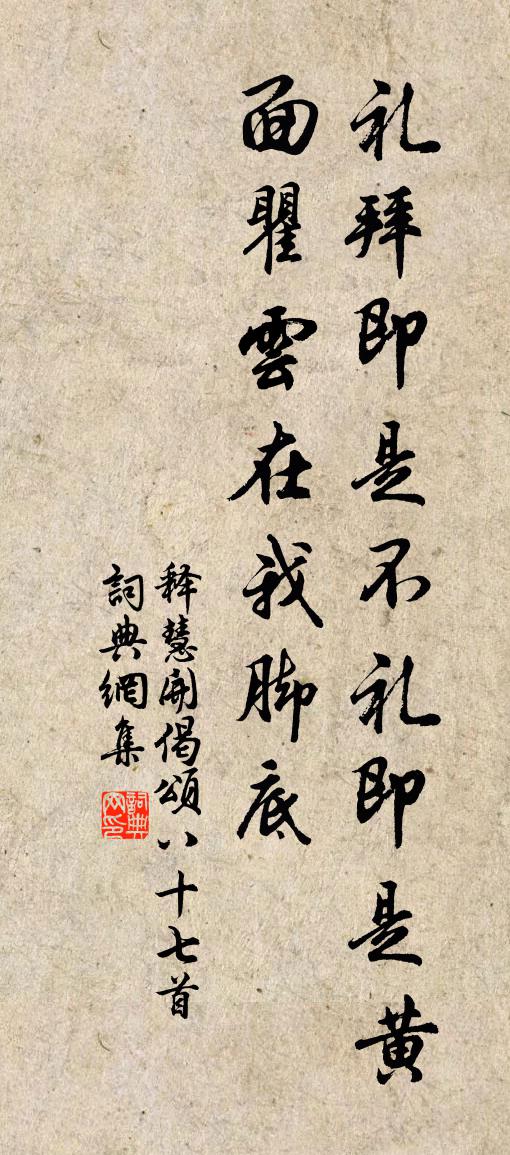 礼拜即是不礼即是黄
面瞿雲在我脚底
释慧開偈頌八十七首
詞典網集
詞典
网印